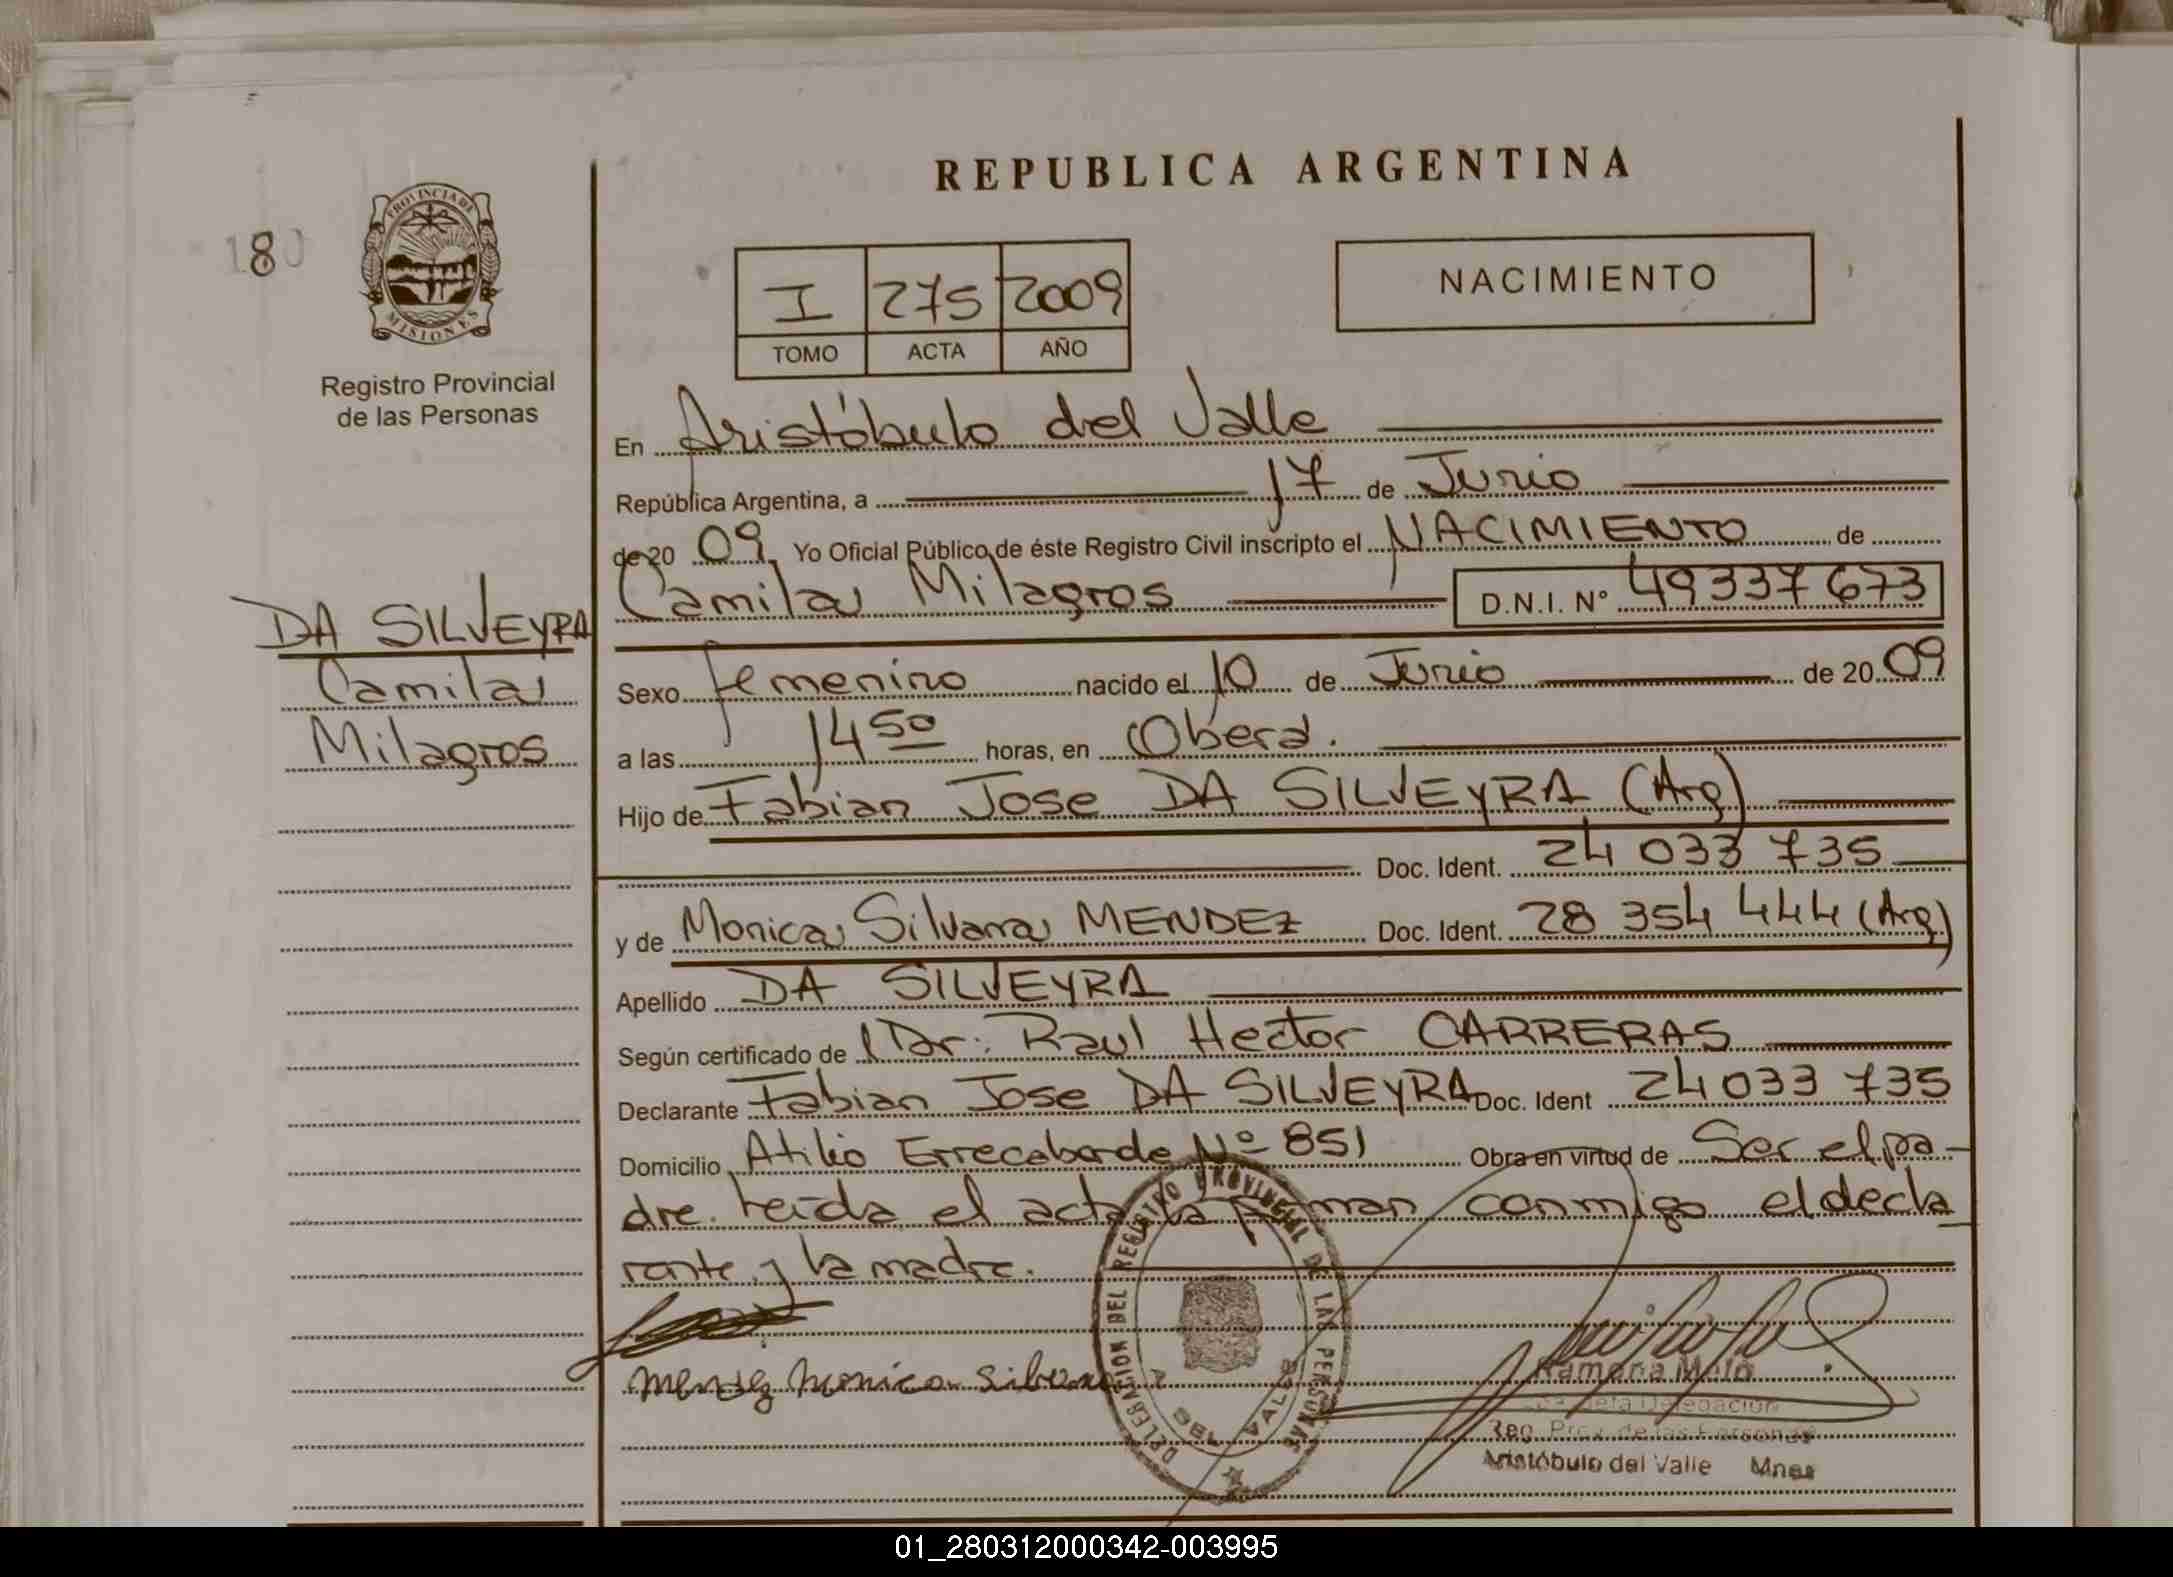 REPUBLICA ARGENTINA
180
PROVINCIA DE
MISIONES
Registro Provincial
de las Personas
I 275 2009
TOMO ACTA AÑO
NACIMIENTO
En Aristóbulo del Valle
República Argentina, a 17 de Junio
de 20 09 Yo Oficial Público de éste Registro Civil inscripto el NACIMIENTO de
Camila Milagros D.N.I. Nº 49337673
DA SILVEYRA
Camila
Milagros
Sexo femenino nacido el 10 de Junio de 20 09
a las 14 50 horas, en Oberá.
Hijo de Fabian Jose DA SILVEYRA (Arg)
Doc. Ident. 24 033 735
y de Monica Silvana MENDEZ Doc. Ident. 28 354 444 (Arg)
Apellido DA SILVEYRA
Según certificado de Dr. Raul Hector CARRERAS
Declarante Fabian Jose DA SILVEYRA Doc. Ident 24 033 735
Domicilio Atilio Errecaborde Nº 851 Obra en virtud de Ser el pa-
dre. Leída el acta la firman conmigo el decla
rante y la madre.
Mendez Monica Silvana
DELEGACION DEL REGISTRO PROVINCIAL DE LAS PERSONAS
VALLE
Ramona Melo
Delegación
Reg. Prov. de las Personas
Aristóbulo del Valle Mnes
01_280312000342-003995